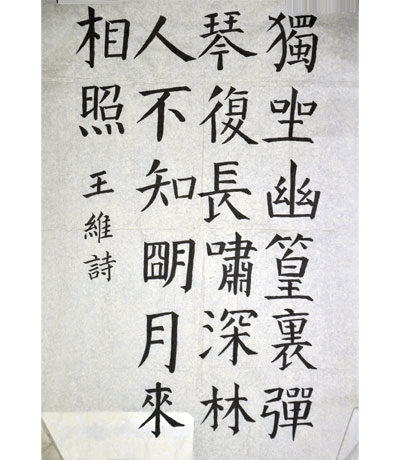 獨坐幽篁裏彈
琴復長嘯深林
人不知明月來
相照
王維詩